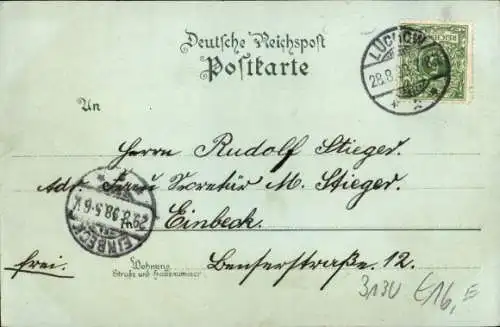 Deutsche Reichspost
Postkarte
LÜCHOW
28.8.
REICHSPOST
5
An
Herrn Rudolf Stieger.
Adr. Frau Secretär M. Stieger.
Einbeck.
EINBECK
29.8.98.5-6 V.
frei.
Wohnung
Straße und Hausnummer
Benserstraße. 12.
3130
€16,